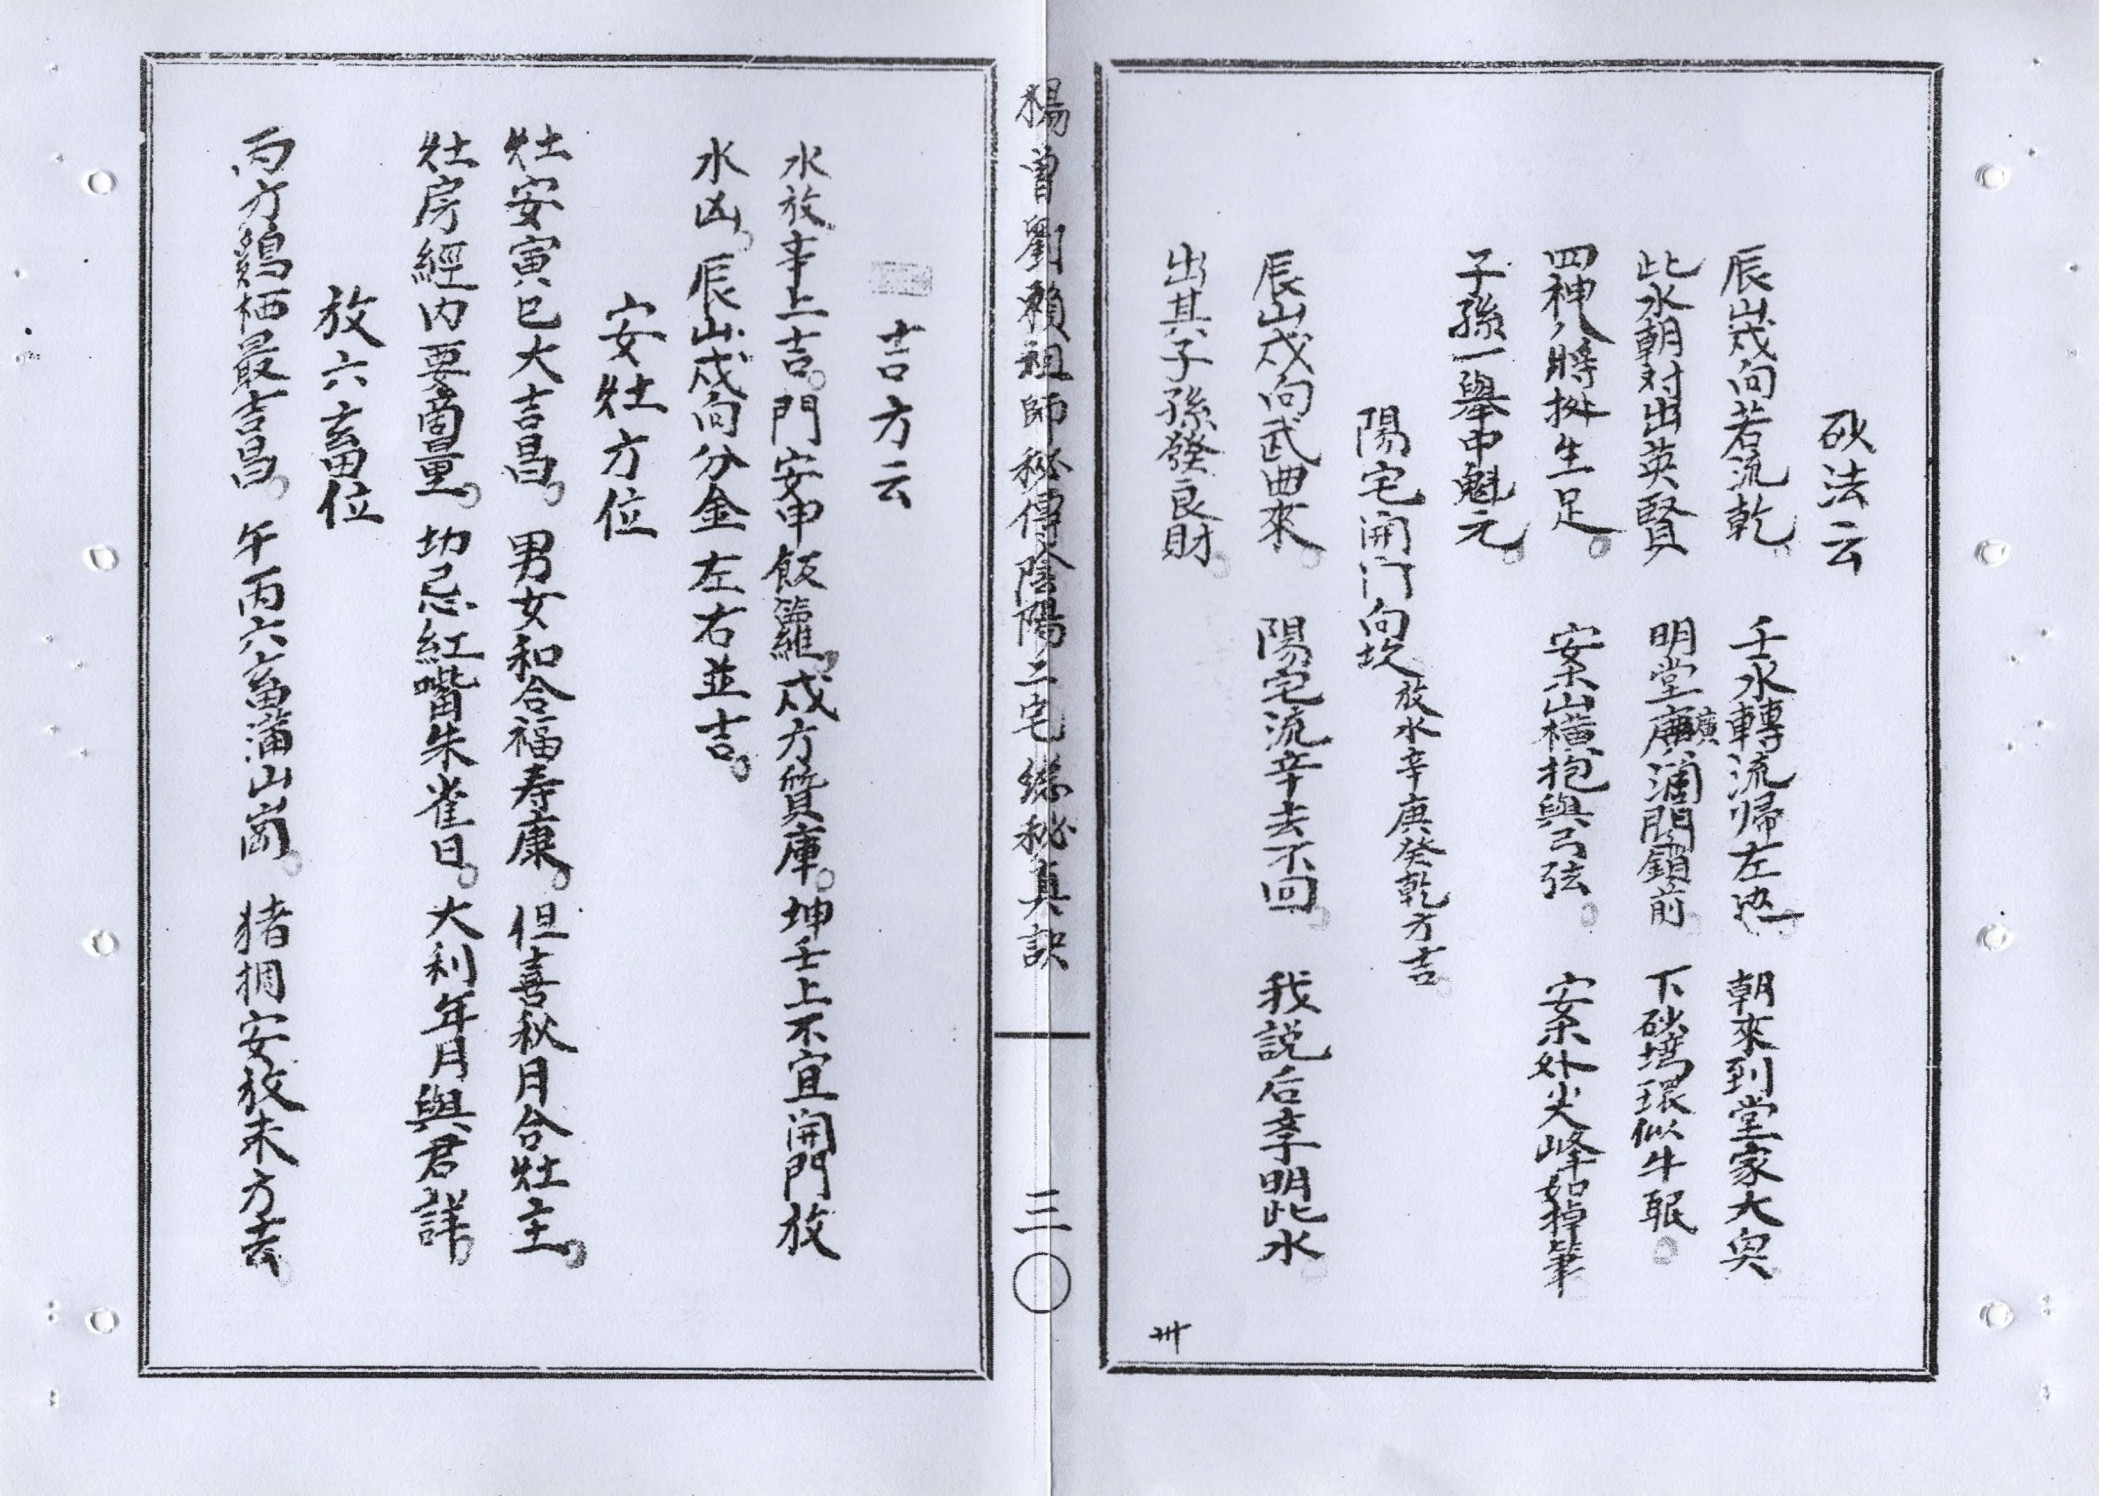 砂法云
辰山戍向若流乾 壬水轉流帰左边 朝來到堂家大兴
此水朝对出英賢 明堂廣濶関鎖前 下砂塆環似牛眠。
四神八將拱生足。 安案山橫抱與弓弦。 安案外尖峰如掉筆
子孫一舉中魁元。
陽宅開门向坎 放水辛庚癸乾方吉。
辰山戍向武曲來。 陽宅流辛去不回。 我説后李明此水。
出其子孫發良財。
卅
楊曾劉賴祖師秘傳陰陽二宅總秘真訣 三〇
吉方云
水放事上吉。門安申飯籮。戍方質庫。坤壬上不宜開門放
水凶。辰山戍向分金左右並吉。
安灶方位
灶安寅巳大吉昌。男女和合福寿康。但喜秋月合灶主。
灶房經内要商量。切忌紅嘴朱雀日。大利年月與君詳。
放六畜位
丙方鷄栖最吉昌。午丙六畜滿山崗。猪捆安放未方去。